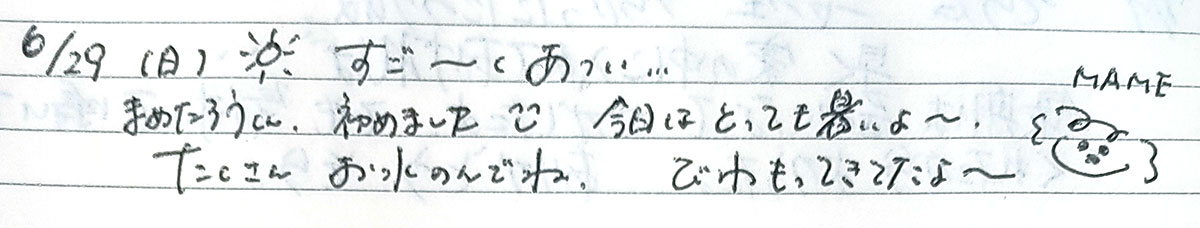 6/29 (日) すご〜くあつい...
MAME
まめたろうくん、初めました 今日はとっても暑いよ〜.
たくさん お水のんでね、 びわもってきてたよ〜